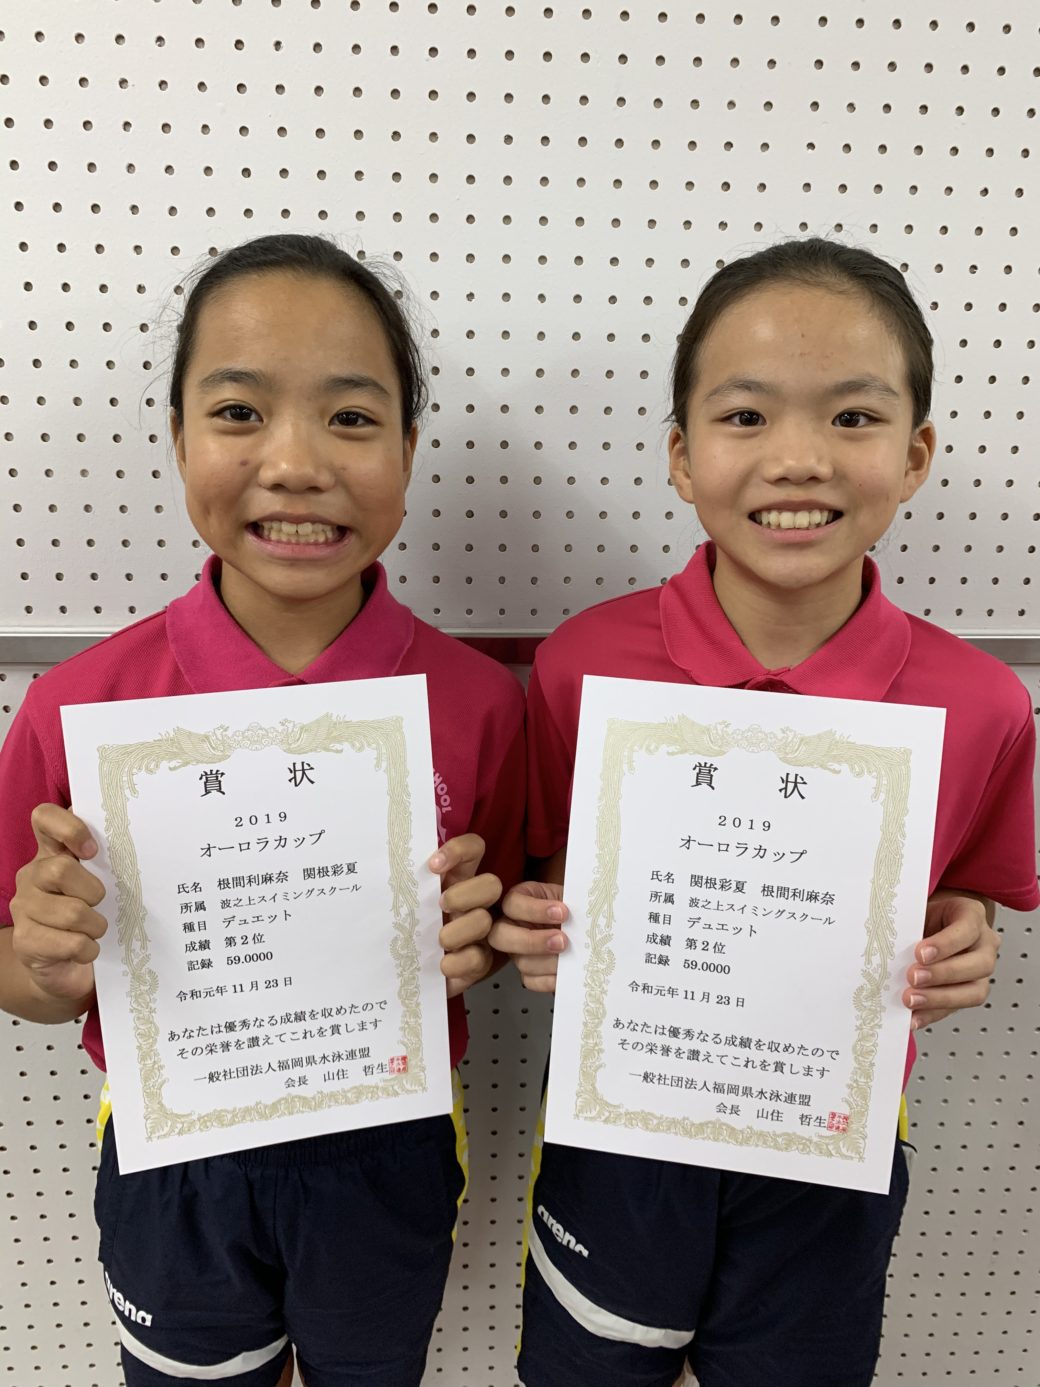 賞 状
2019
オーロラカップ
氏名 根間利麻奈 関根彩夏
所属 波之上スイミングスクール
種目 デュエット
成績 第2位
記録 59.0000
令和元年11月23日
あなたは優秀なる成績を収めたので
その栄誉を讃えてこれを賞します
一般社団法人福岡県水泳連盟
会長 山住 哲生
賞 状
2019
オーロラカップ
氏名 関根彩夏 根間利麻奈
所属 波之上スイミングスクール
種目 デュエット
成績 第2位
記録 59.0000
令和元年11月23日
あなたは優秀なる成績を収めたので
その栄誉を讃えてこれを賞します
一般社団法人福岡県水泳連盟
会長 山住 哲生
HOOL
arena
arena